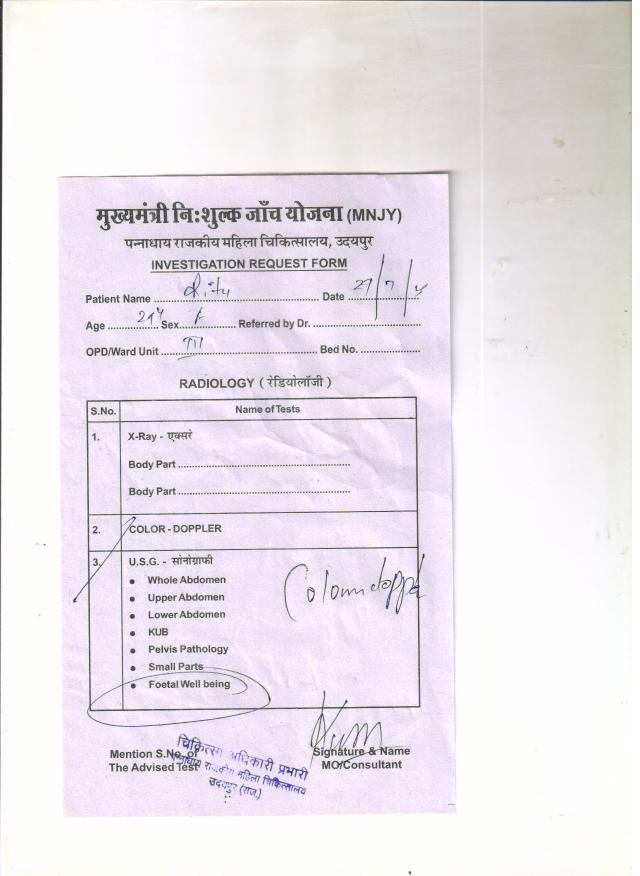 मुख्यमंत्री निःशुल्क जाँच योजना (MNJY)
पन्नाधाय राजकीय महिला चिकित्सालय, उदयपुर
INVESTIGATION REQUEST FORM
Patient Name .......... Ritu .......... Date ..........
Age .......... Sex.......... Referred by Dr. ..........
OPD/Ward Unit .......... III .......... Bed No. ..........
RADIOLOGY ( रेडियोलॉजी )
S.No. Name of Tests
1. X-Ray - एक्सरे
Body Part ..........
Body Part ..........
2. COLOR - DOPPLER
3. U.S.G. - सोनोग्राफी
• Whole Abdomen
• Upper Abdomen
• Lower Abdomen
• KUB
• Pelvis Pathology
• Small Parts
• Foetal Well being
Mention S.No. of
The Advised Test
चिकित्सा अधिकारी प्रभारी
पन्नाधाय राजकीय महिला चिकित्सालय
उदयपुर (राज.)
Signature & Name
MO/Consultant